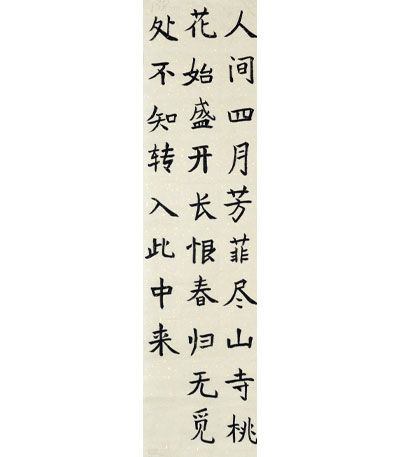 人间四月芳菲尽山寺桃
花始盛开长恨春归无觅
处不知转入此中来